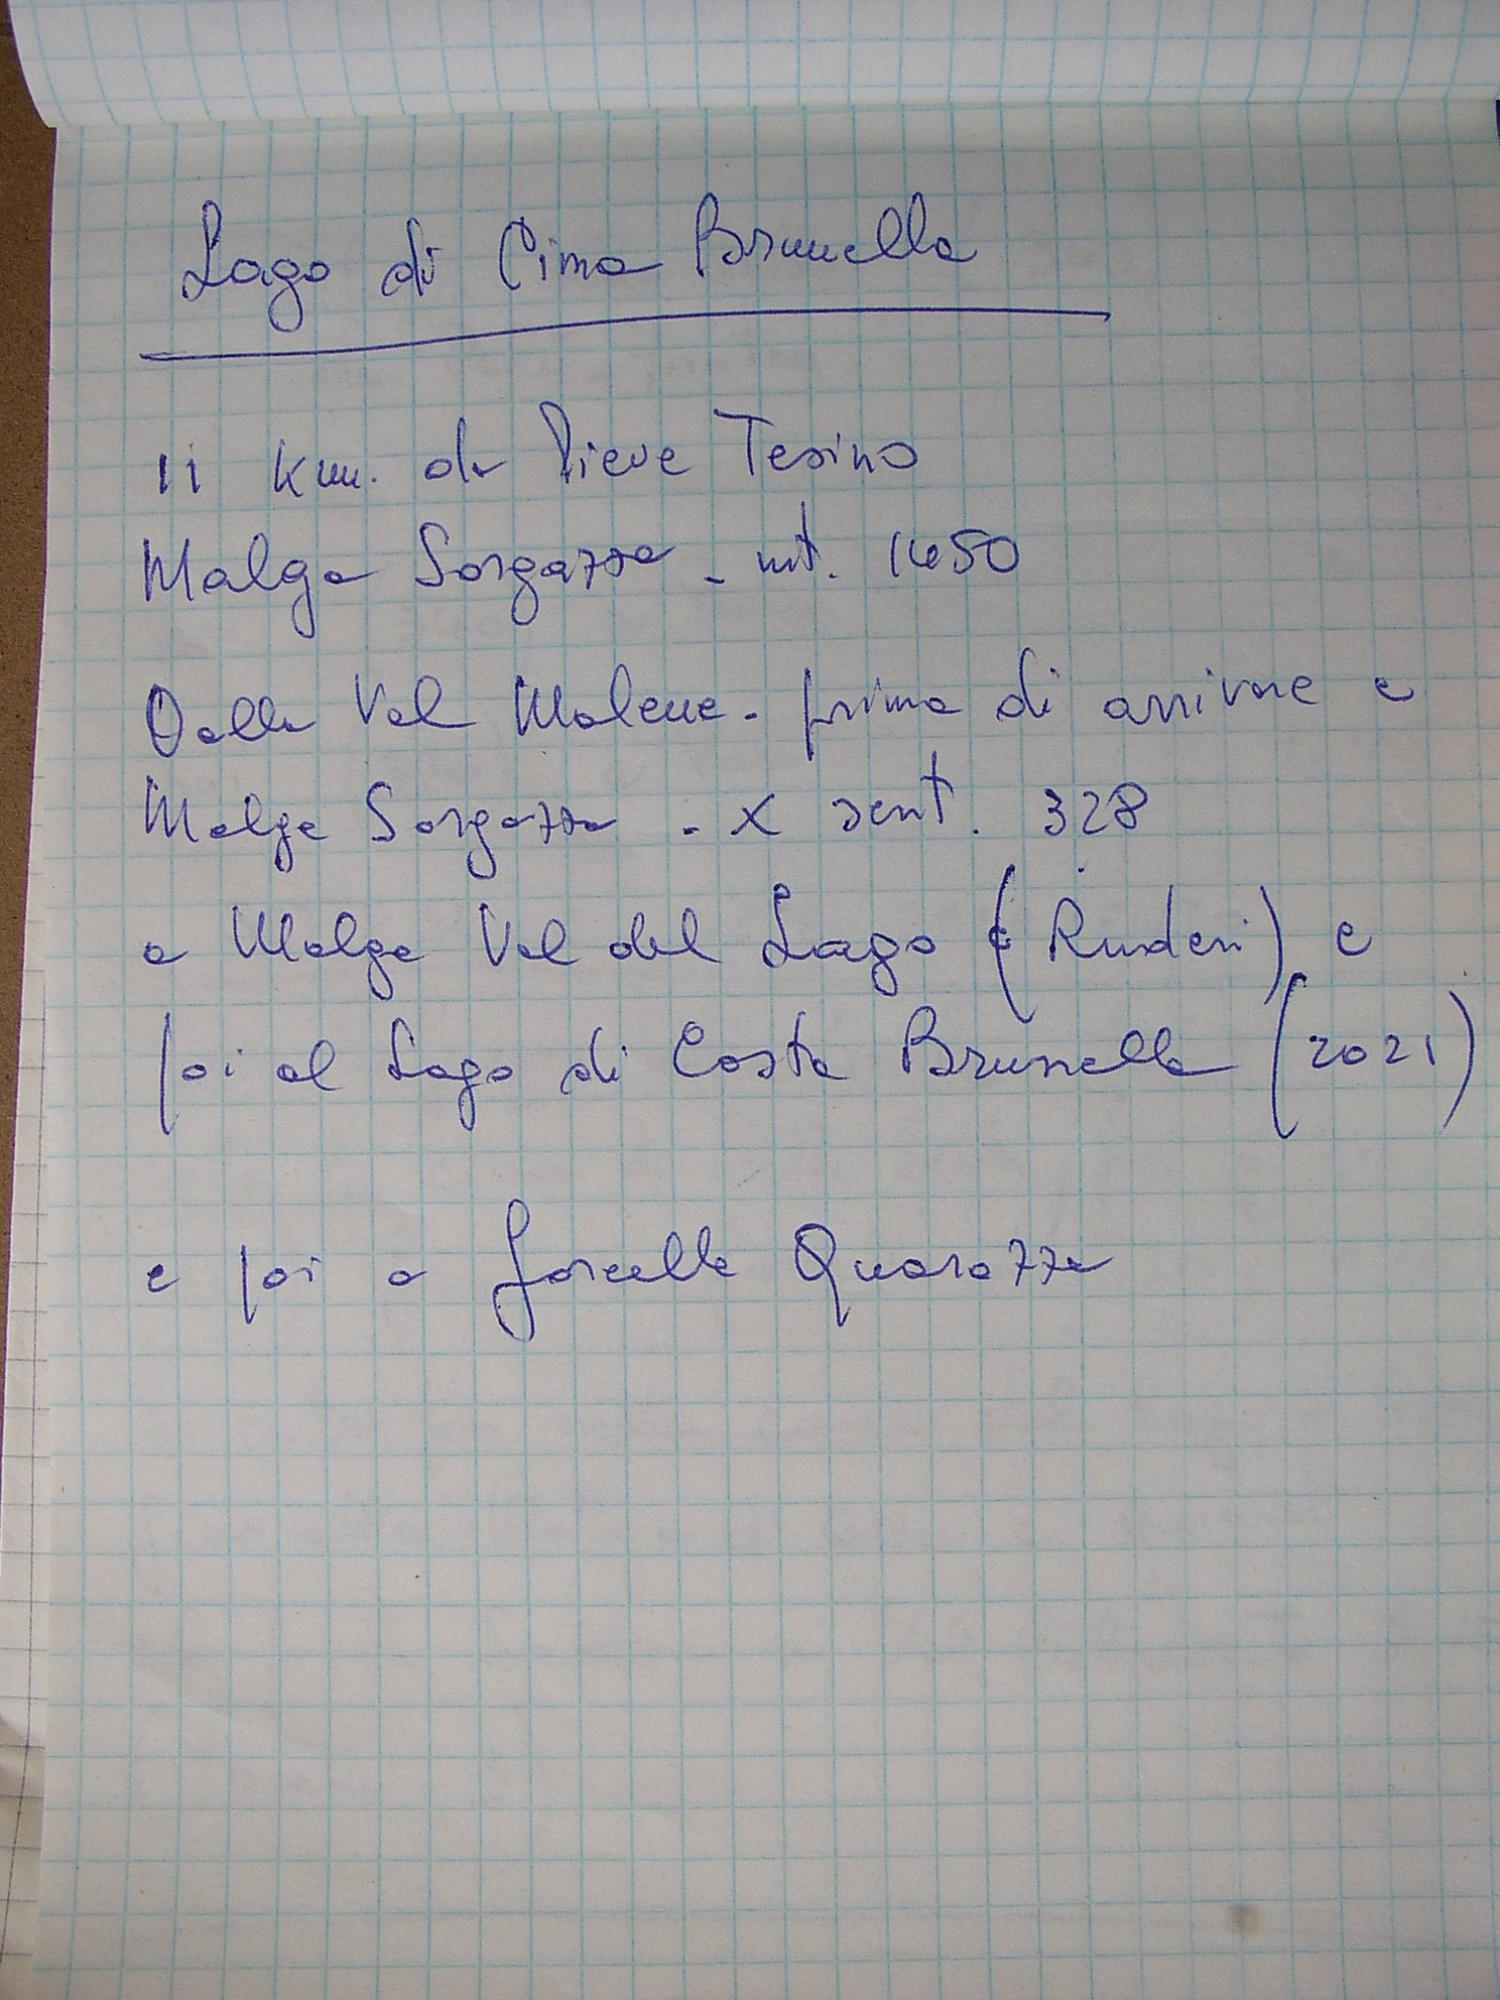 Lago di Cima Brunella
11 Km. da Pieve Tesino
Malga Sorgazza - mt. 1450
Dalla Val Malene - prima di arrivare a
Malga Sorgazza - x sent. 328
a Malga Val del Lago (Ruderi) e
poi al Lago di Costa Brunella (2021)
e poi a forcella Quarazza